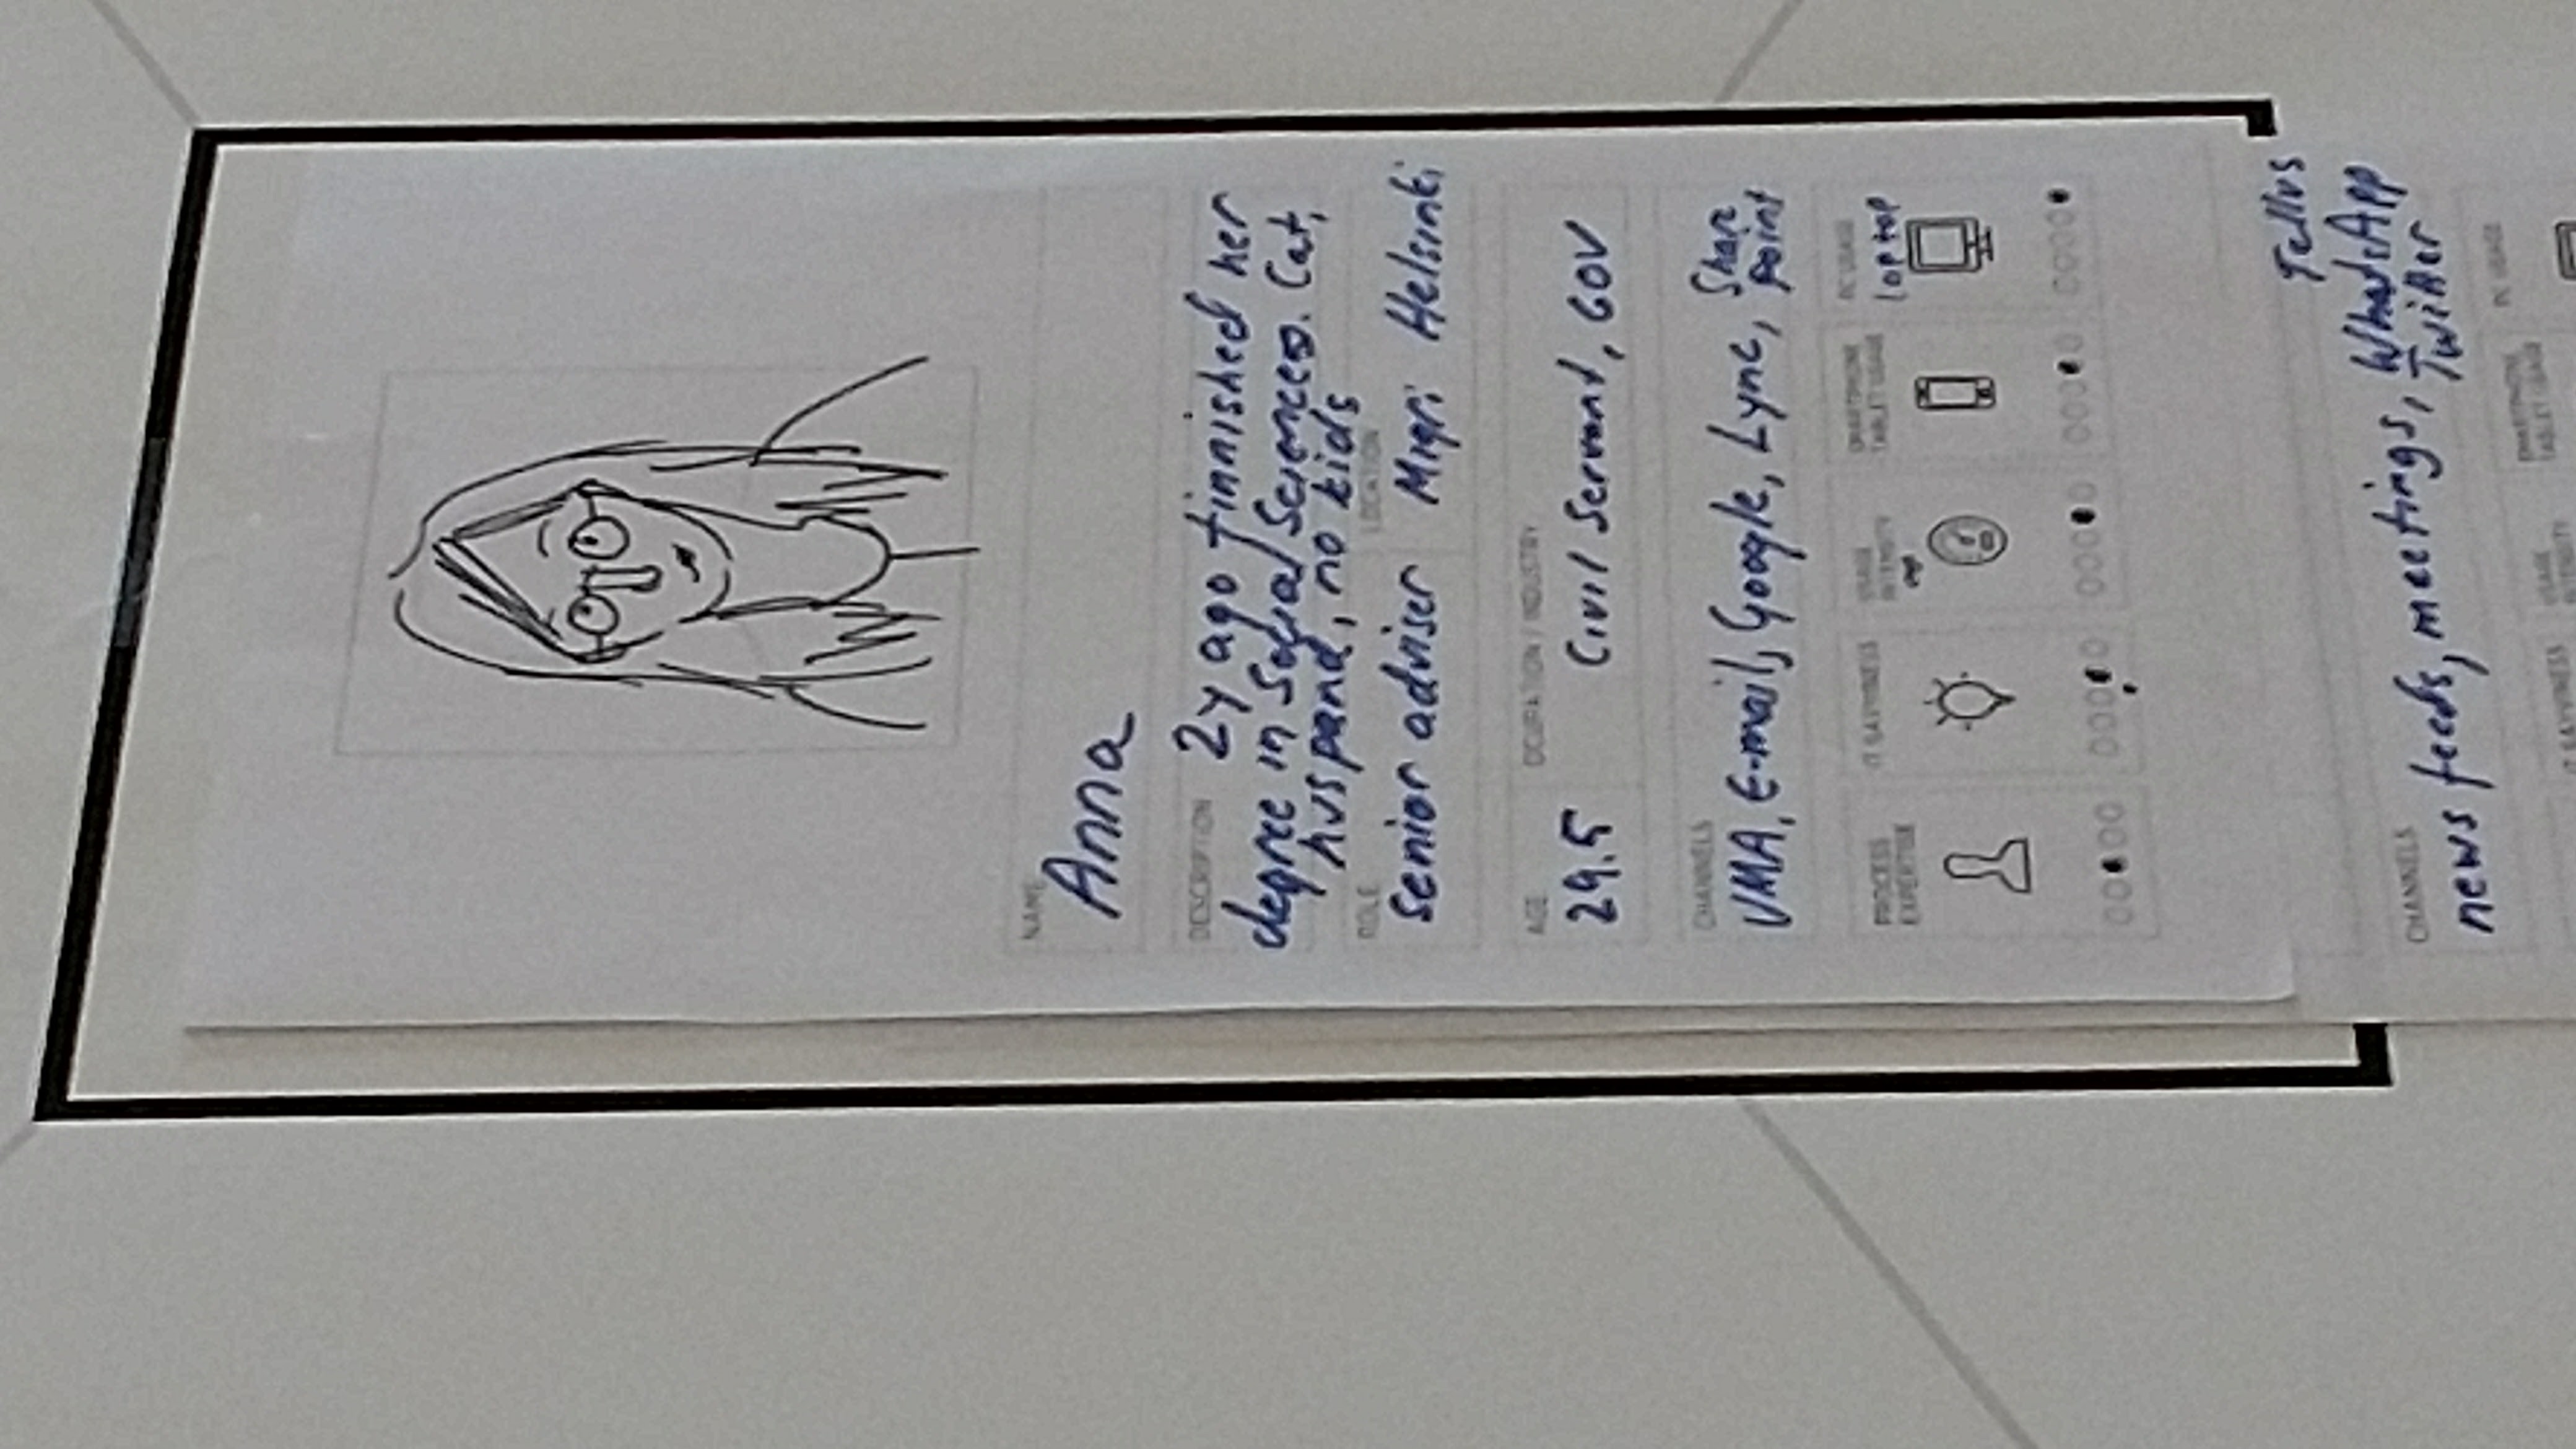 NAME
Anna
DESCRIPTION 2y ago finnished her
degree in Social Sciences. Cat,
huspand, no kids
ROLE
LOCATION
Senior adviser Migri Helsinki
AGE
OCUPATION / INDUSTRY
29.5 Civil Servant, GOV
CHANNELS
VMA, E-mail, Google, Lync, Share
point
PROCESS
EXPERTISE
IT SAVVYNESS
USAGE
INTENSITY
SMARTPHONE
TABLET USAGE
PC USAGE
Laptop
Tellus
CHANNELS
news feeds, meetings, WhatsApp
Twitter
IT SAVVYNESS
USAGE
INTENSITY
SMARTPHONE
TABLET USAGE
PC USAGE